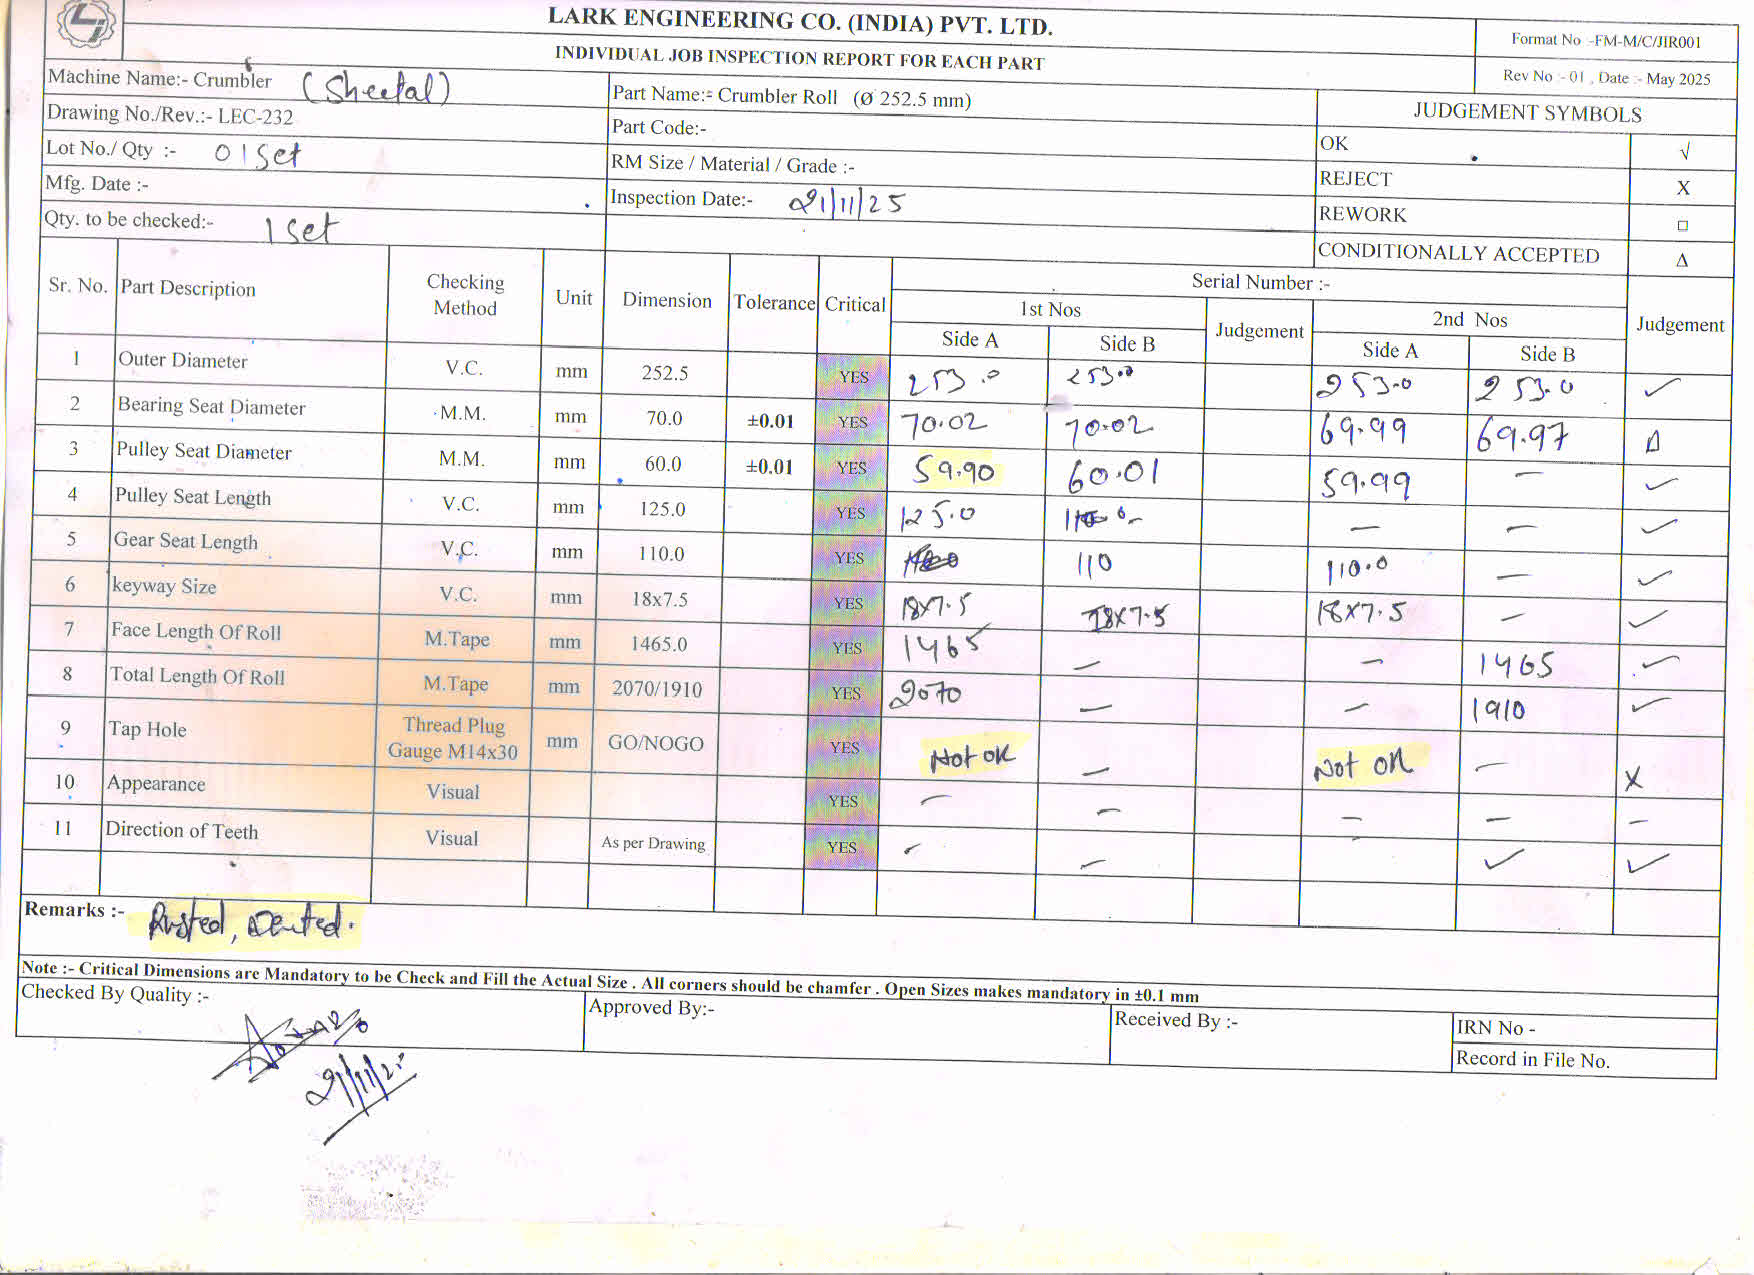 LARK ENGINEERING CO. (INDIA) PVT. LTD.
INDIVIDUAL JOB INSPECTION REPORT FOR EACH PART
Format No -FM-M/C/JIR001
Rev No :- 01 , Date :- May 2025
Machine Name:- Crumbler (Sheetal)
Part Name:- Crumbler Roll (Ø 252.5 mm)
JUDGEMENT SYMBOLS
Drawing No./Rev.:- LEC-232
Part Code:-
OK √
Lot No./ Qty :- 01 Set
RM Size / Material / Grade :-
REJECT X
Mfg. Date :-
Inspection Date:- 21/11/25
REWORK □
Qty. to be checked:- 1 Set
CONDITIONALLY ACCEPTED Δ
Sr. No. Part Description Checking Method Unit Dimension Tolerance Critical Serial Number :- Judgement
1st Nos Judgement 2nd Nos
Side A Side B Side A Side B
1 Outer Diameter V.C. mm 252.5 YES 253.0 253.0 253.0 253.0 ✓
2 Bearing Seat Diameter M.M. mm 70.0 ±0.01 YES 70.02 70.02 69.99 69.97 Δ
3 Pulley Seat Diameter M.M. mm 60.0 ±0.01 YES 59.90 60.01 59.99 — ✓
4 Pulley Seat Length V.C. mm 125.0 YES 125.0 — — ✓
5 Gear Seat Length V.C. mm 110.0 YES 110 110.0 — ✓
6 keyway Size V.C. mm 18x7.5 YES 18x7.5 18x7.5 18x7.5 — ✓
7 Face Length Of Roll M.Tape mm 1465.0 YES 1465 — — 1465 ✓
8 Total Length Of Roll M.Tape mm 2070/1910 YES 2070 — — 1910 ✓
9 Tap Hole Thread Plug Gauge M14x30 mm GO/NOGO YES Not OK — Not OK — X
10 Appearance Visual YES — — — — —
11 Direction of Teeth Visual As per Drawing YES ✓ — ✓ ✓
Remarks :- Rusted, Dented.
Note :- Critical Dimensions are Mandatory to be Check and Fill the Actual Size . All corners should be chamfer . Open Sizes makes mandatory in ±0.1 mm
Checked By Quality :-
Approved By:-
Received By :-
IRN No -
Record in File No.
21/11/25